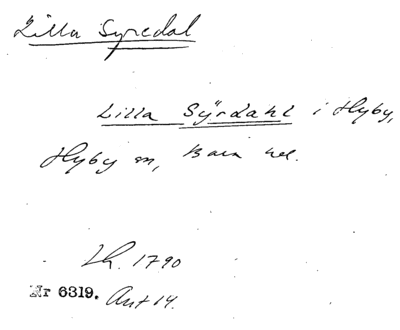 Lilla Syredal
Lilla Syrdahl i Hyby,
Hyby sn, Bara hd.
Lh. 1790
Nr 6319. Ant 14.